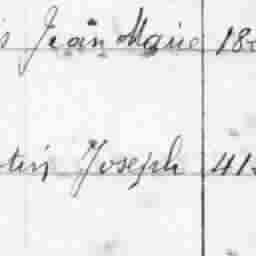 s Jean Marie 18
tin Joseph 41